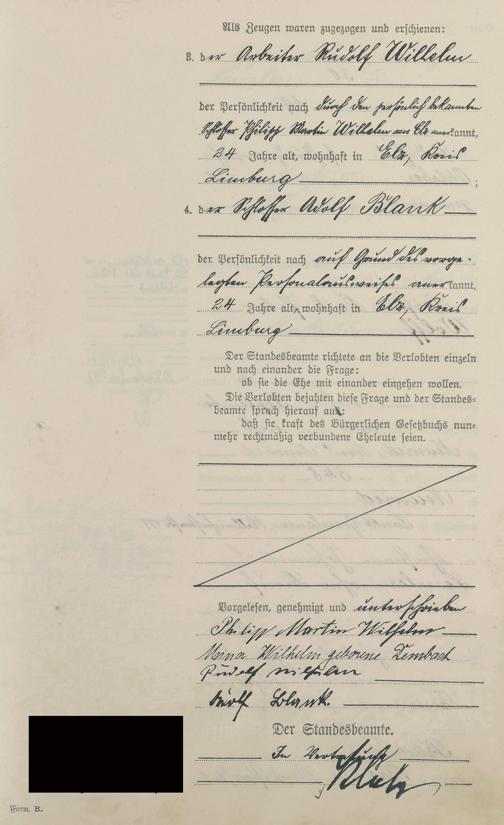 Als Zeugen waren zugezogen und erschienen:
3. der Arbeiter Rudolf Wilhelm
der Persönlichkeit nach durch den persönlich bekannten
Schlosser Philipp Martin Wilhelm aus Elz anerkannt,
24 Jahre alt, wohnhaft in Elz, Kreis
Limburg ;
4. der Schlosser Adolf Blank
der Persönlichkeit nach auf Grund des vorge-
legten Personalausweises anerkannt,
24 Jahre alt, wohnhaft in Elz, Kreis
Limburg
Der Standesbeamte richtete an die Verlobten einzeln
und nach einander die Frage:
ob sie die Ehe mit einander eingehen wollen.
Die Verlobten bejahten diese Frage und der Standes-
beamte sprach hierauf aus:
daß sie kraft des Bürgerlichen Gesetzbuchs nun-
mehr rechtmäßig verbundene Eheleute seien.
Vorgelesen, genehmigt und unterschrieben
Philipp Martin Wilhelm
Wilhelm geborene
Rudolf Wilhelm
Adolf Blank.
Der Standesbeamte.
In Vertretung
Form. B.